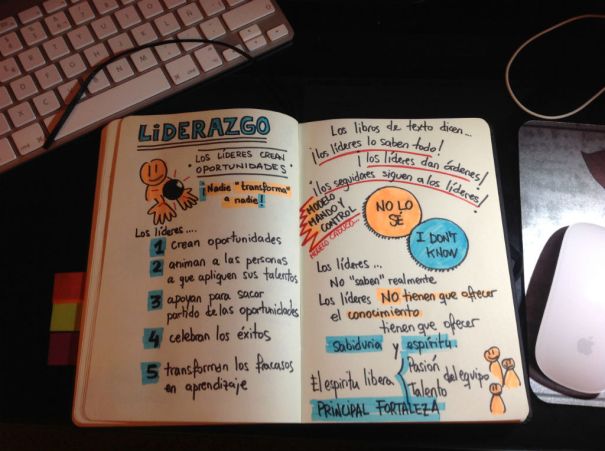 LIDERAZGO
LOS LÍDERES CREAN
OPORTUNIDADES
¡Nadie "transforma"
a nadie!
Los líderes....
1 crean oportunidades
2 animan a las personas
a que apliquen sus talentos
3 apoyan para sacar
partido de las oportunidades
4 celebran los éxitos
5 transforman los fracasos
en aprendizaje
Los libros de texto dicen...
¡los líderes lo saben todo!
¡los líderes dan órdenes!
¡los seguidores siguen a los líderes!
MODELO
MANDO Y
CONTROL
MODELO CADUCO...
NO LO
SÉ
I DON'T
KNOW
Los líderes...
No "saben" realmente
Los líderes NO tienen que ofrecer
el conocimiento
tienen que ofrecer
sabiduría y espíritu.
El espíritu libera
Pasión
Talento
del equipo
PRINCIPAL FORTALEZA